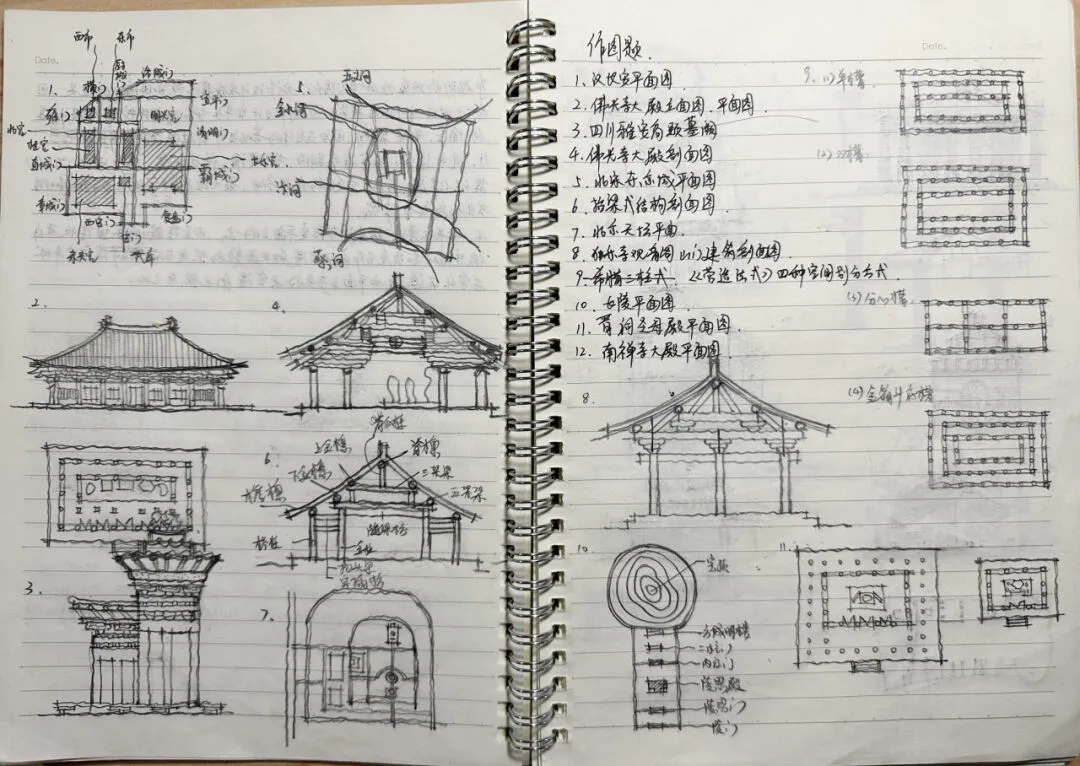 Date.
西市
东市
1.
横门
洛城门
宣平门
雍门
明光宫
清明门
桂宫
直城门
长乐宫
霸城门
章城门
西安门
覆盎门
安门
未央宫
武库
5.
五丈河
金水河
汴河
蔡河
2.
4.
6.
脊瓜柱
上金檩
脊檩
下金檩
三架梁
五架梁
随梁枋
金柱
3.
7.
作图题.
1. 汉长安平面图
2. 佛光寺大殿立面图.平面图.
3. 四川雅安高颐墓阙
4. 佛光寺大殿剖面图
5. 北宋东京城平面图
6. 抬梁式结构剖面图.
7. 北京天坛平面.
8. 独乐寺观音阁山门建筑剖面图
9. 希腊三柱式.《营造法式》四种空间划分方式.
10. 长陵平面图.
11. 晋祠圣母殿平面图.
12. 南禅寺大殿平面图.
Date.
9. (1)单槽
(2)双槽
(3)分心槽
(4)金箱斗底槽
8.
10
宝顶
方城明楼
二柱门
内红门
祾恩殿
祾恩门
陵门
11.
12